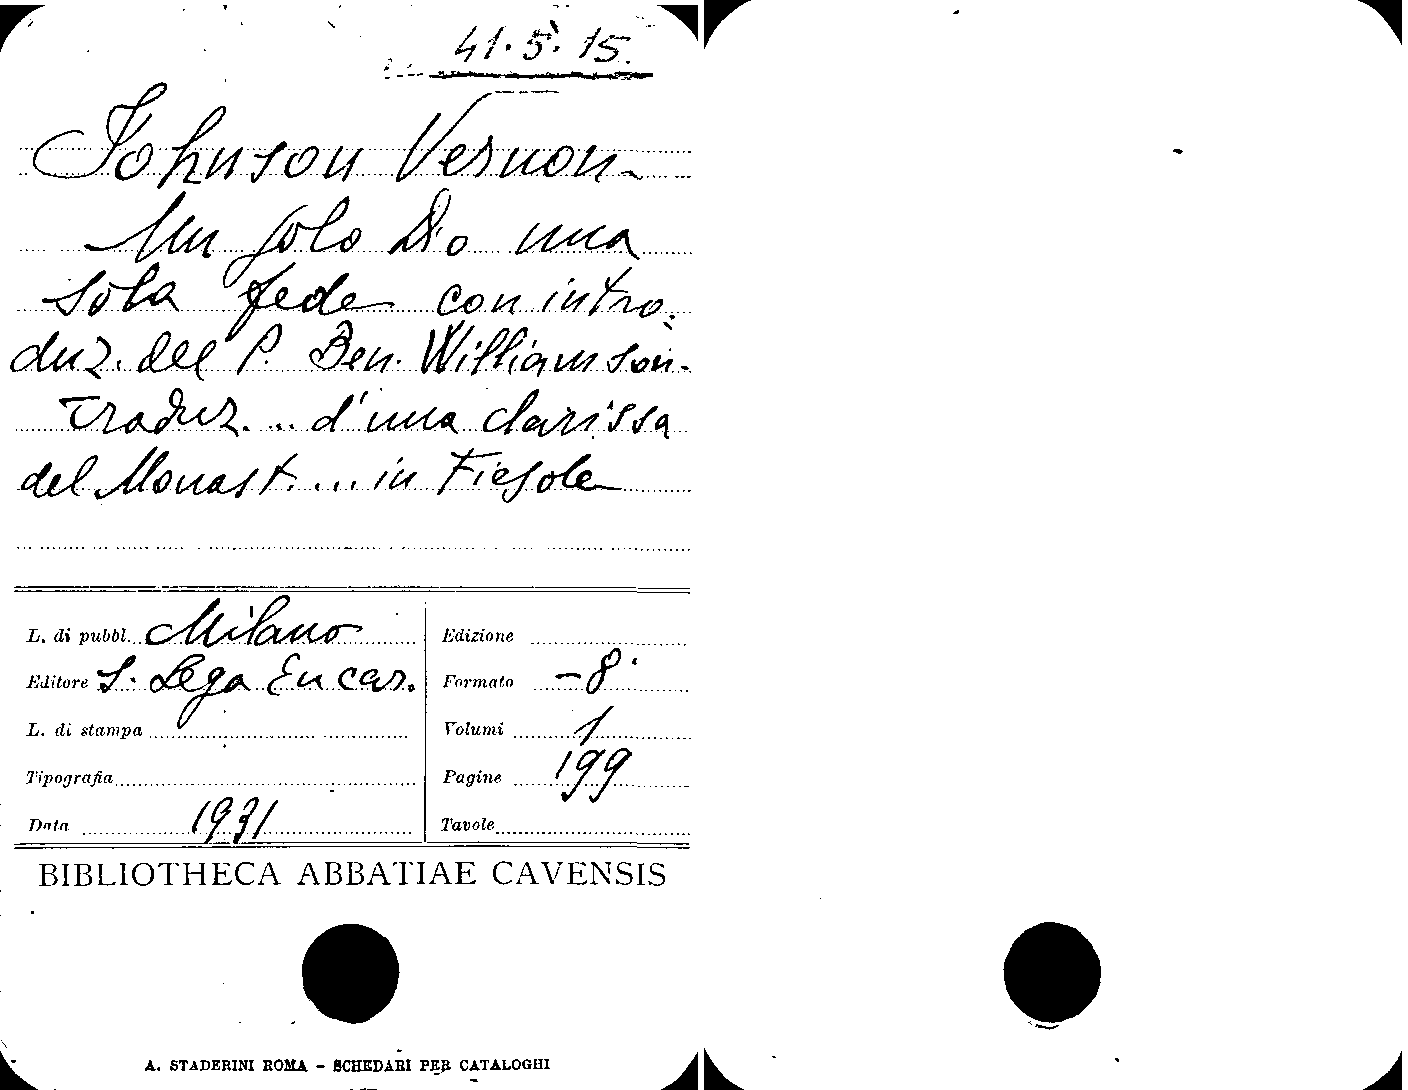 41.5.15.
Johnson Vernon-
Un solo Dio una
sola fede con intro-
duz. del P. Ben. Williamson.
Traduz. ... d'una clarissa
del Monast. ... in Fiesole
L. di pubbl. Milano
Editore S. Lega Eucar.
L. di stampa
Tipografia
Data 1931
Edizione
Formato -8°
Volumi 1
Pagine 199
Tavole
BIBLIOTHECA ABBATIAE CAVENSIS
A. STADERINI ROMA - SCHEDARI PER CATALOGHI